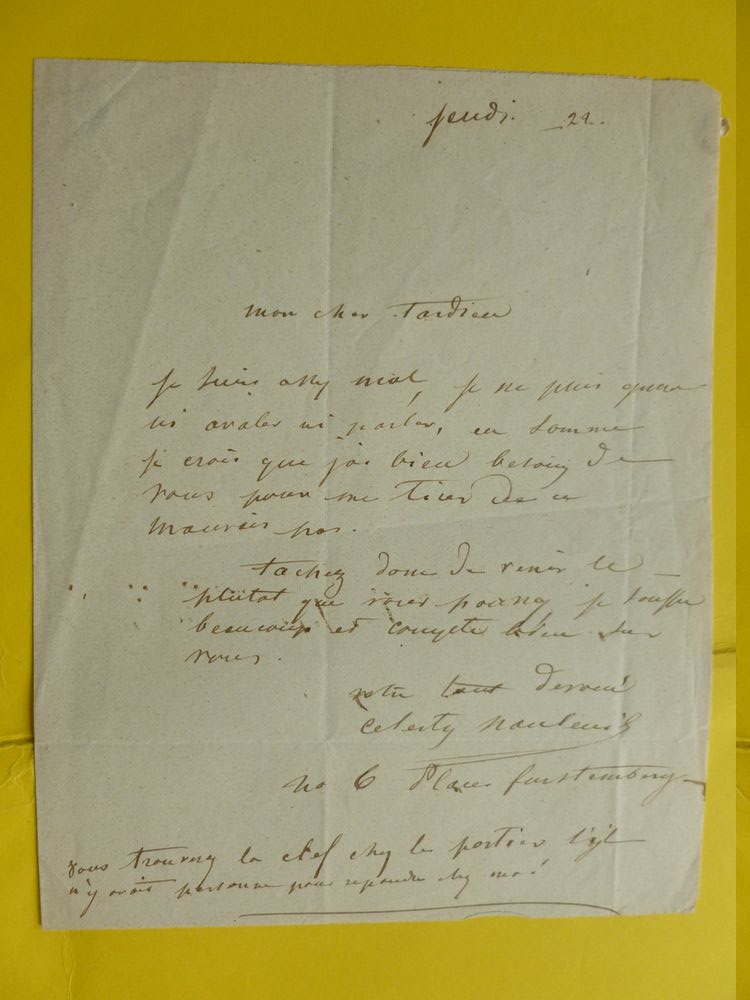 jeudi. 22.
mon cher Tardieu
je suis assez mal, je ne puis guere
ni avaler ni parler, en somme
je crois que j'ai bien besoin de
vous pour me tirer de ce
mauvais pas.
tachez donc de venir le
plutôt que vous pourrez je souffre
beaucoup et compte bien sur
vous.
votre tout devoué
celestin nanteuil
no 6 Place furstemberg
vous trouverez la clef chez le portier s'il
n'y avait personne pour repondre chez moi